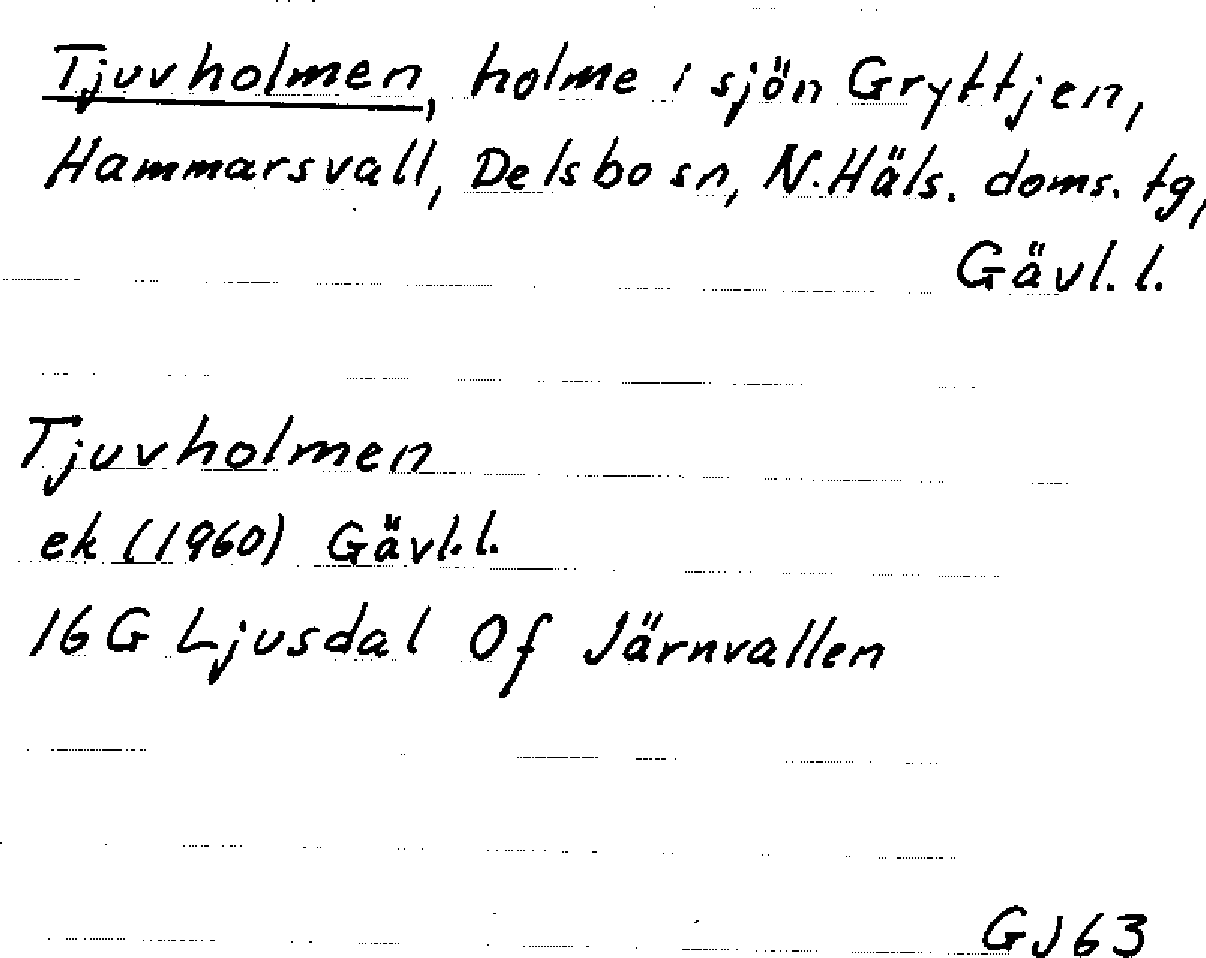 Tjuvholmen, holme i sjön Gryttjen,
Hammarsvall, Delsbo sn, N. Häls. doms. tg,
Gävl. l.
Tjuvholmen
ek (1960) Gävl. l.
16G Ljusdal 0f Järnvallen
GJ63